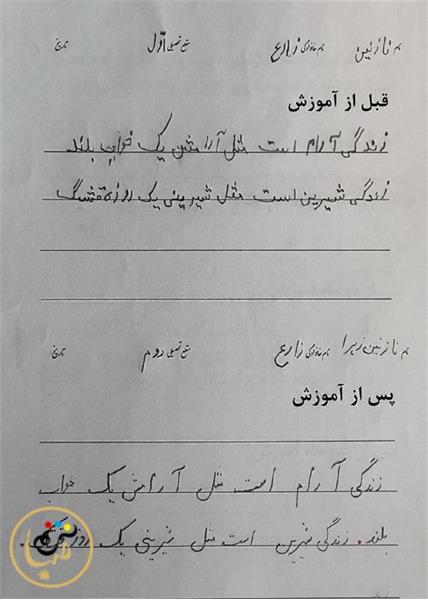 نام نازنین نام خانوادگی زارع سطح تحصیلی اوّل تاریخ
قبل از آموزش
زندگی آرام است مثل آرامش یک خواب بلند
زندگی شیرین است مثل شیرینی یک روز قشنگ
نام نازنین زهرا نام خانوادگی زارع سطح تحصیلی دوم تاریخ
پس از آموزش
زندگی آرام است مثل آرامش یک خواب
بلند. زندگی شیرین است مثل شیرینی یک روز